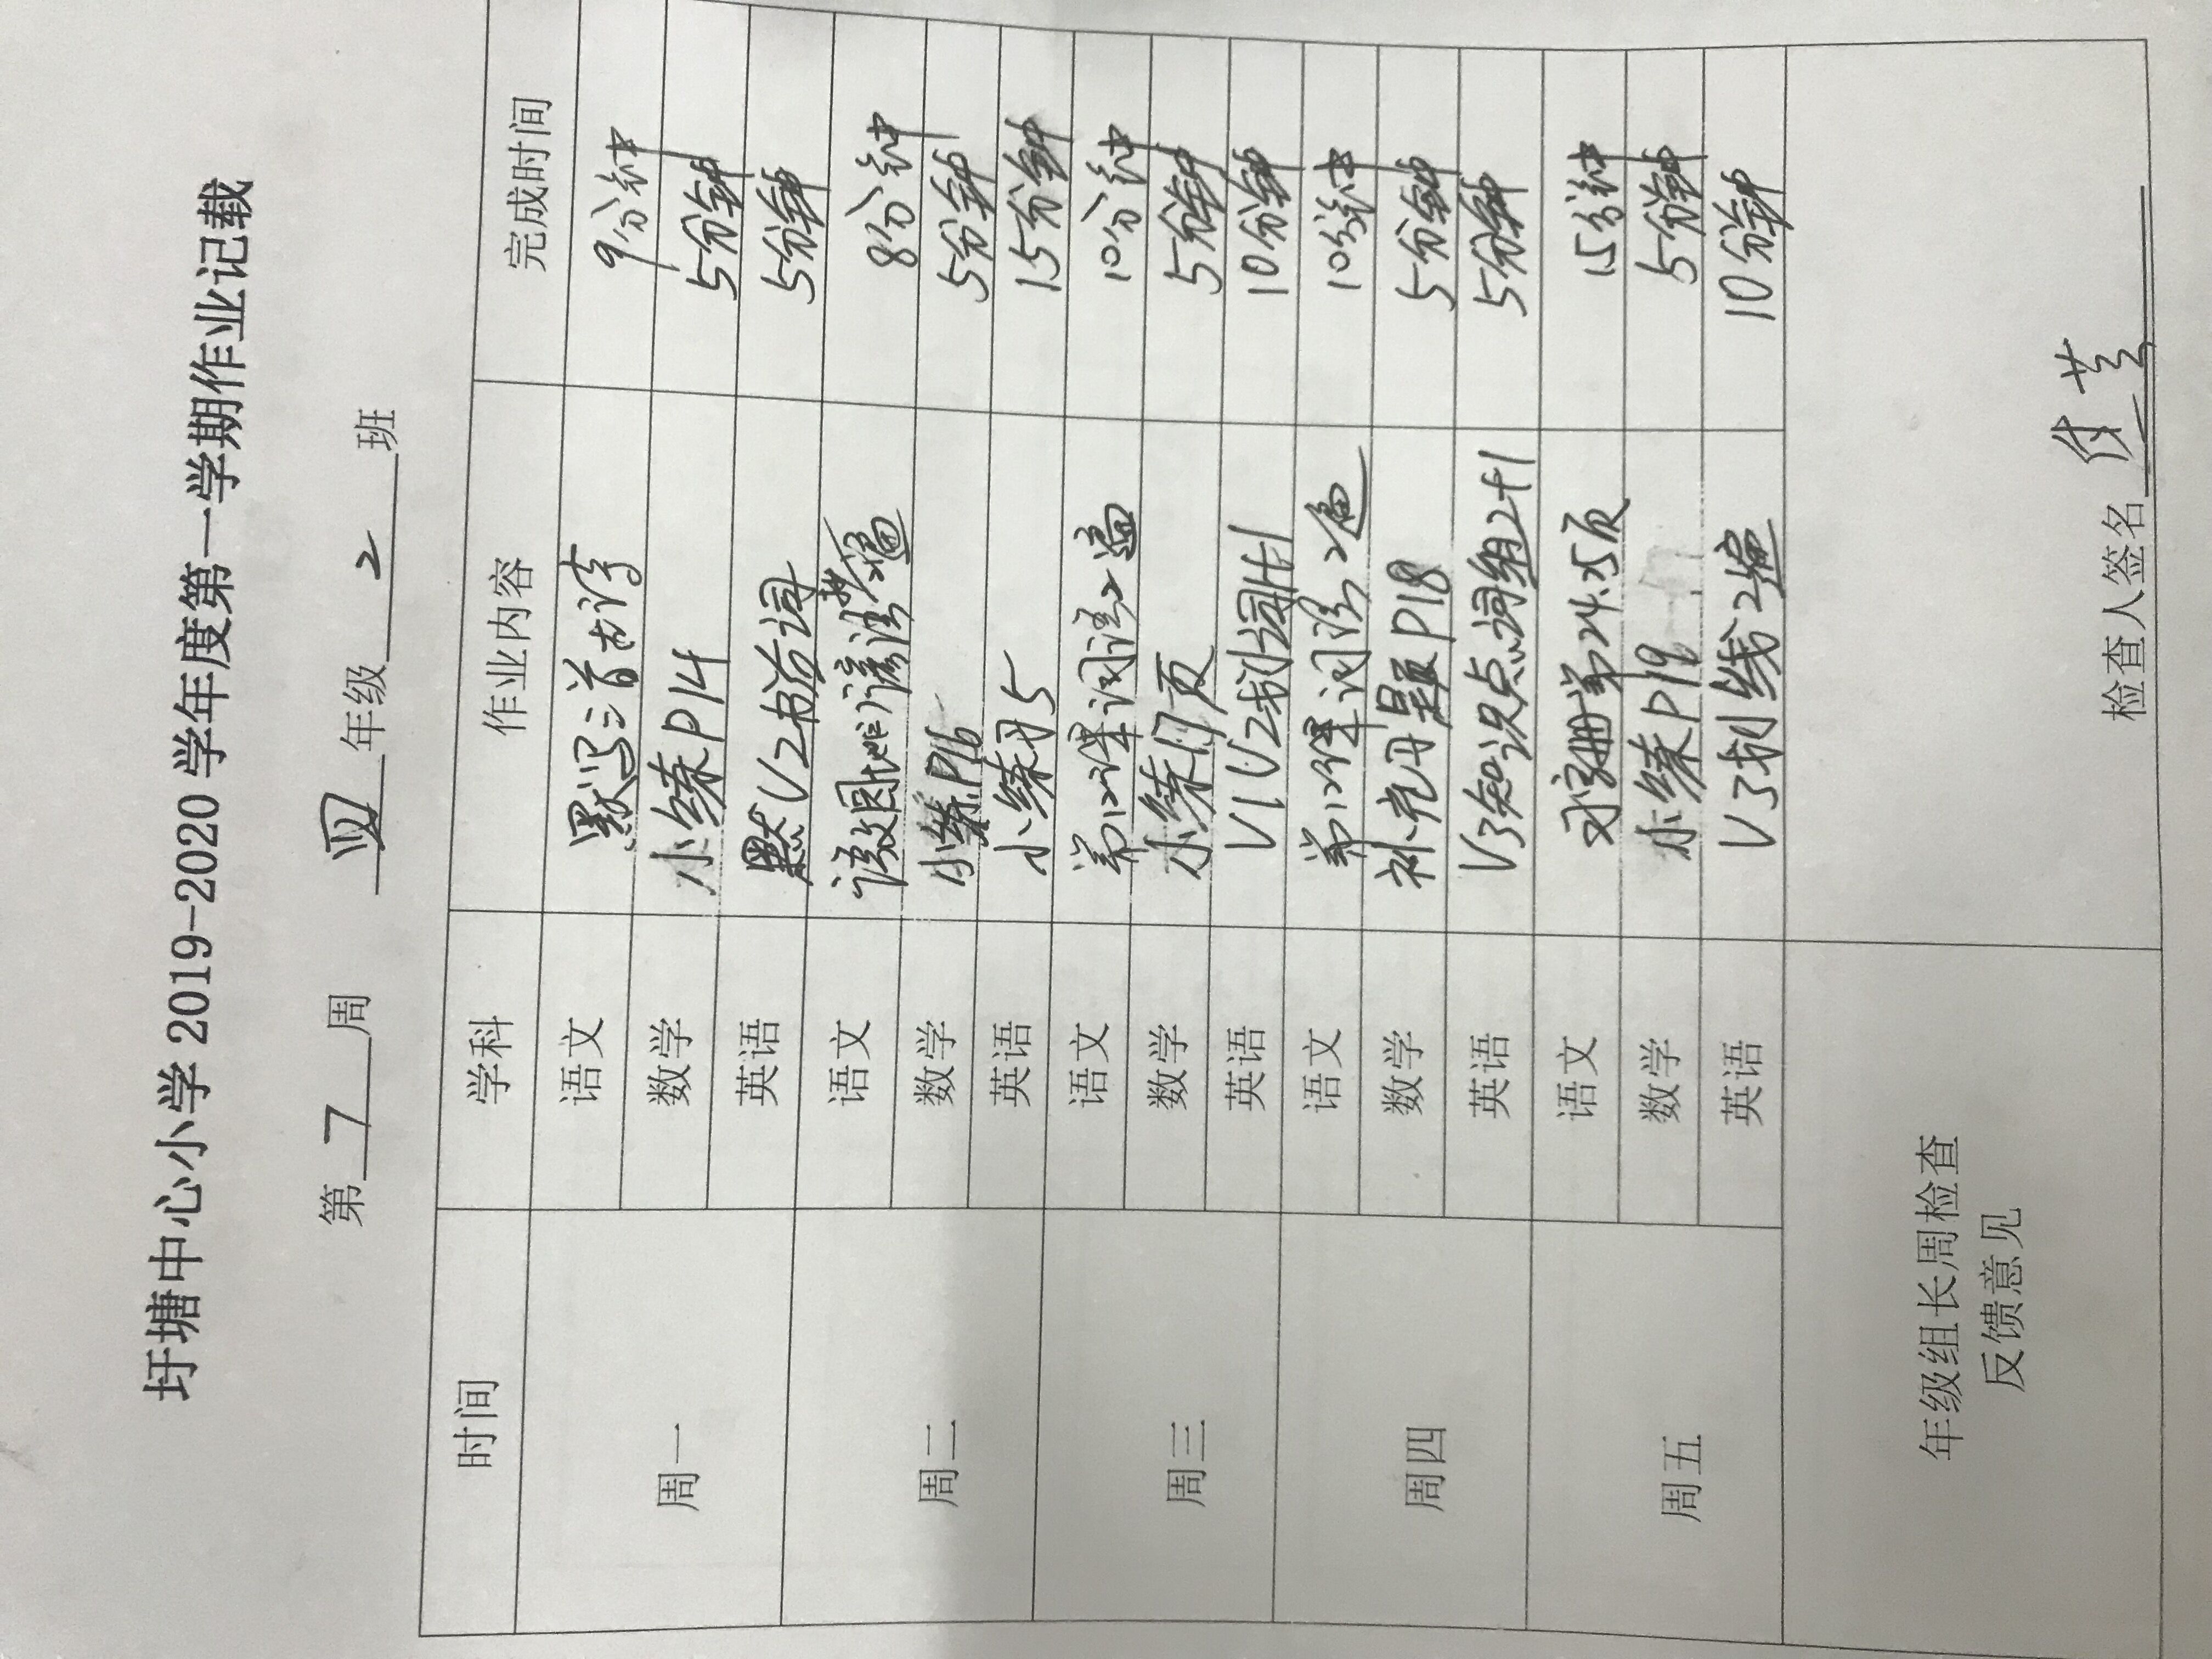 圩塘中心小学 2019-2020 学年度第一学期作业记载
第 7 周 四 年级 2 班
时间 学科 作业内容 完成时间
周一 语文 默写三首古诗 9分钟
数学 小练P14 5分钟
英语 默U2书后词 5分钟
周二 语文 8分钟
数学 小练P16 5分钟
英语 小练习5 15分钟
周三 语文 第12课词语2遍 10分钟
数学 小练17页 5分钟
英语 U1U2划词1+1 10分钟
周四 语文 第12课词语2遍 10分钟
数学 补充习题P18 5分钟
英语 U3知识点词组2+1 5分钟
周五 语文 习字册第24.25页 15分钟
数学 小练P19 5分钟
英语 U3划线2遍 10分钟
年级组长周检查
反馈意见
检查人签名